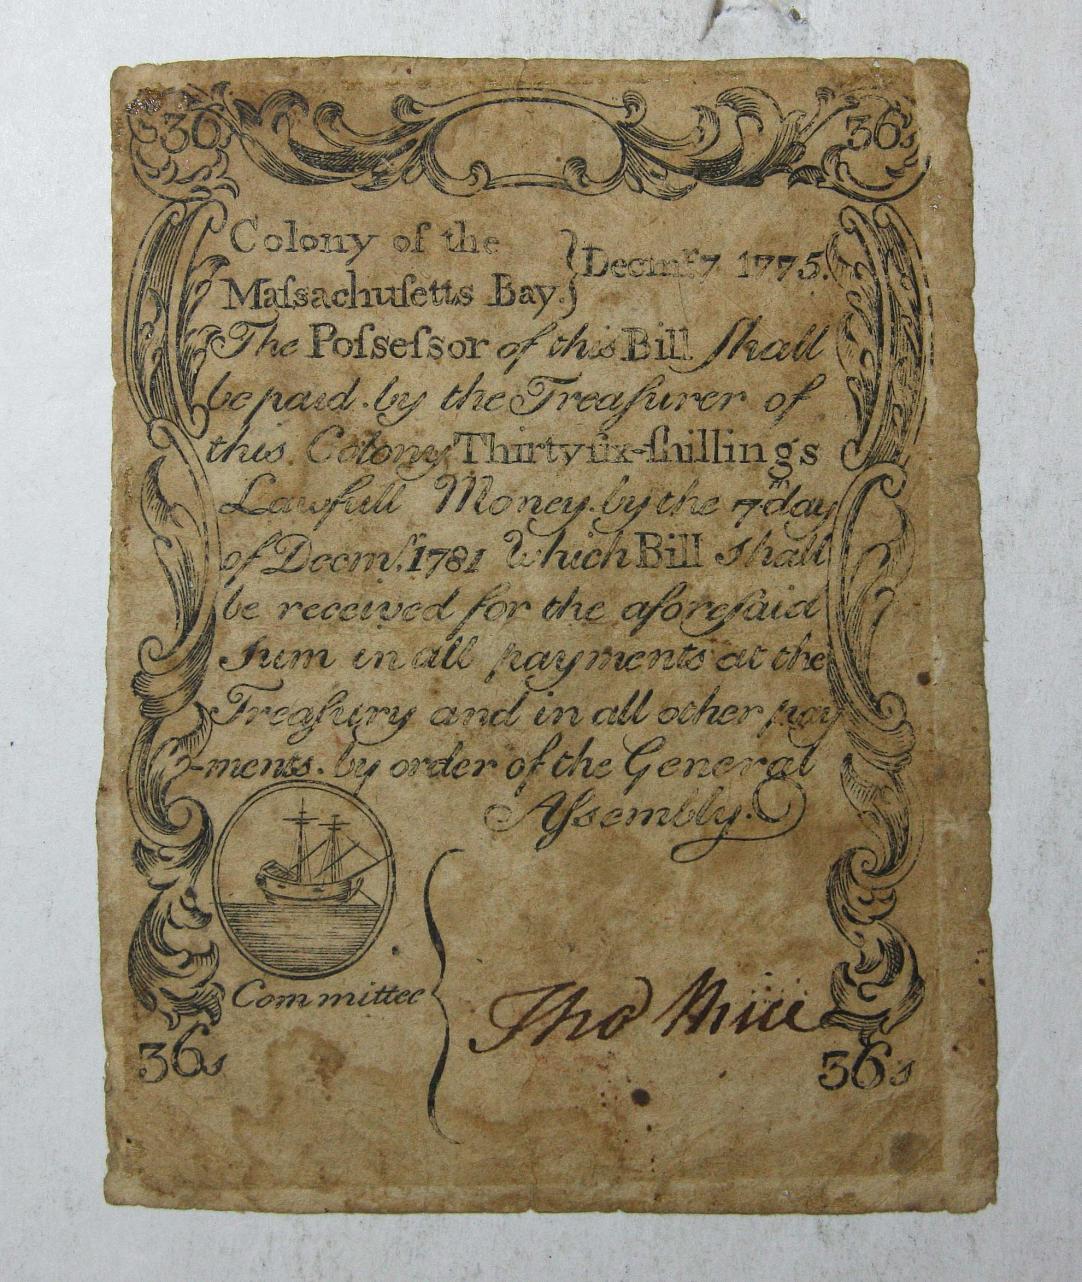 36s 36s
Colony of the
Maſsachuſetts Bay. } Decmr. 7 1775.
The Poſseſsor of this Bill ſhall
be paid by the Treaſurer of
this Colony Thirtyſix-ſhillings
Lawfull Money. by the 7th day
of Decmr. 1781 Which Bill shall
be received for the aforeſaid
Sum in all payments at the
Treaſury and in all other pay
-ments. by order of the General
Aſsembly.
Committee { Thos
36s 36s